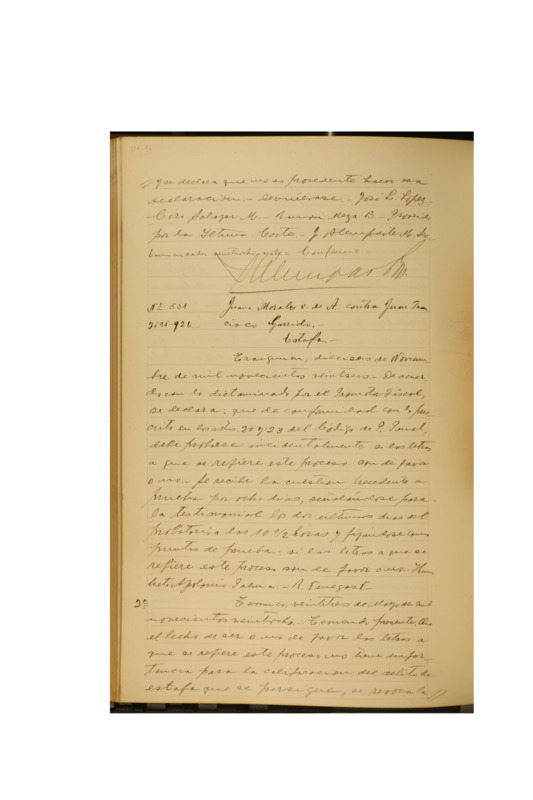 // se declara que no es procedente hacer esa
declaración. - Devuélvase. - José L. López.
Luis Salazar M. - Ramon Meza B. - Proveido
por la Iltma. Corte. - J. Alemparte M. Se-
Conforme -
Nº 501
Juana Morales v. de A. contra Juan Fran
cisco Garrido. -
Estafa. -
Traiguen, dieciseis de Noviem
bre de mil novecientos veintseis. - De acuer
do con lo dictaminado por el Promotor Fiscal,
se declara: que de conformidad con lo pres
crito en los arts. 20 y 23 del Código de P. Penal,
debe probarse incidentalmente si las letras
a que se refiere este proceso son de favor
o no. - Se recibe la cuestion precedente a
prueba por ocho dias, señalándose para
la testimonial los dos últimos dias del
probatorio a las 10 1/2 horas y fijándose como
puntos de prueba: si las letras a que se
refiere este proceso son de favor o no. - Hum
berto Apolonio Palma. - R. Venegas V. -
2ª
Temuco, veintitres de Mayo de mil
novecientos veintiocho. - Teniendo presente: Que
el hecho de ser o no de favor las letras a
que se refiere este proceso no tiene impor-
tancia para la calificacion del delito de
estafa que se persigue, se revoca la //